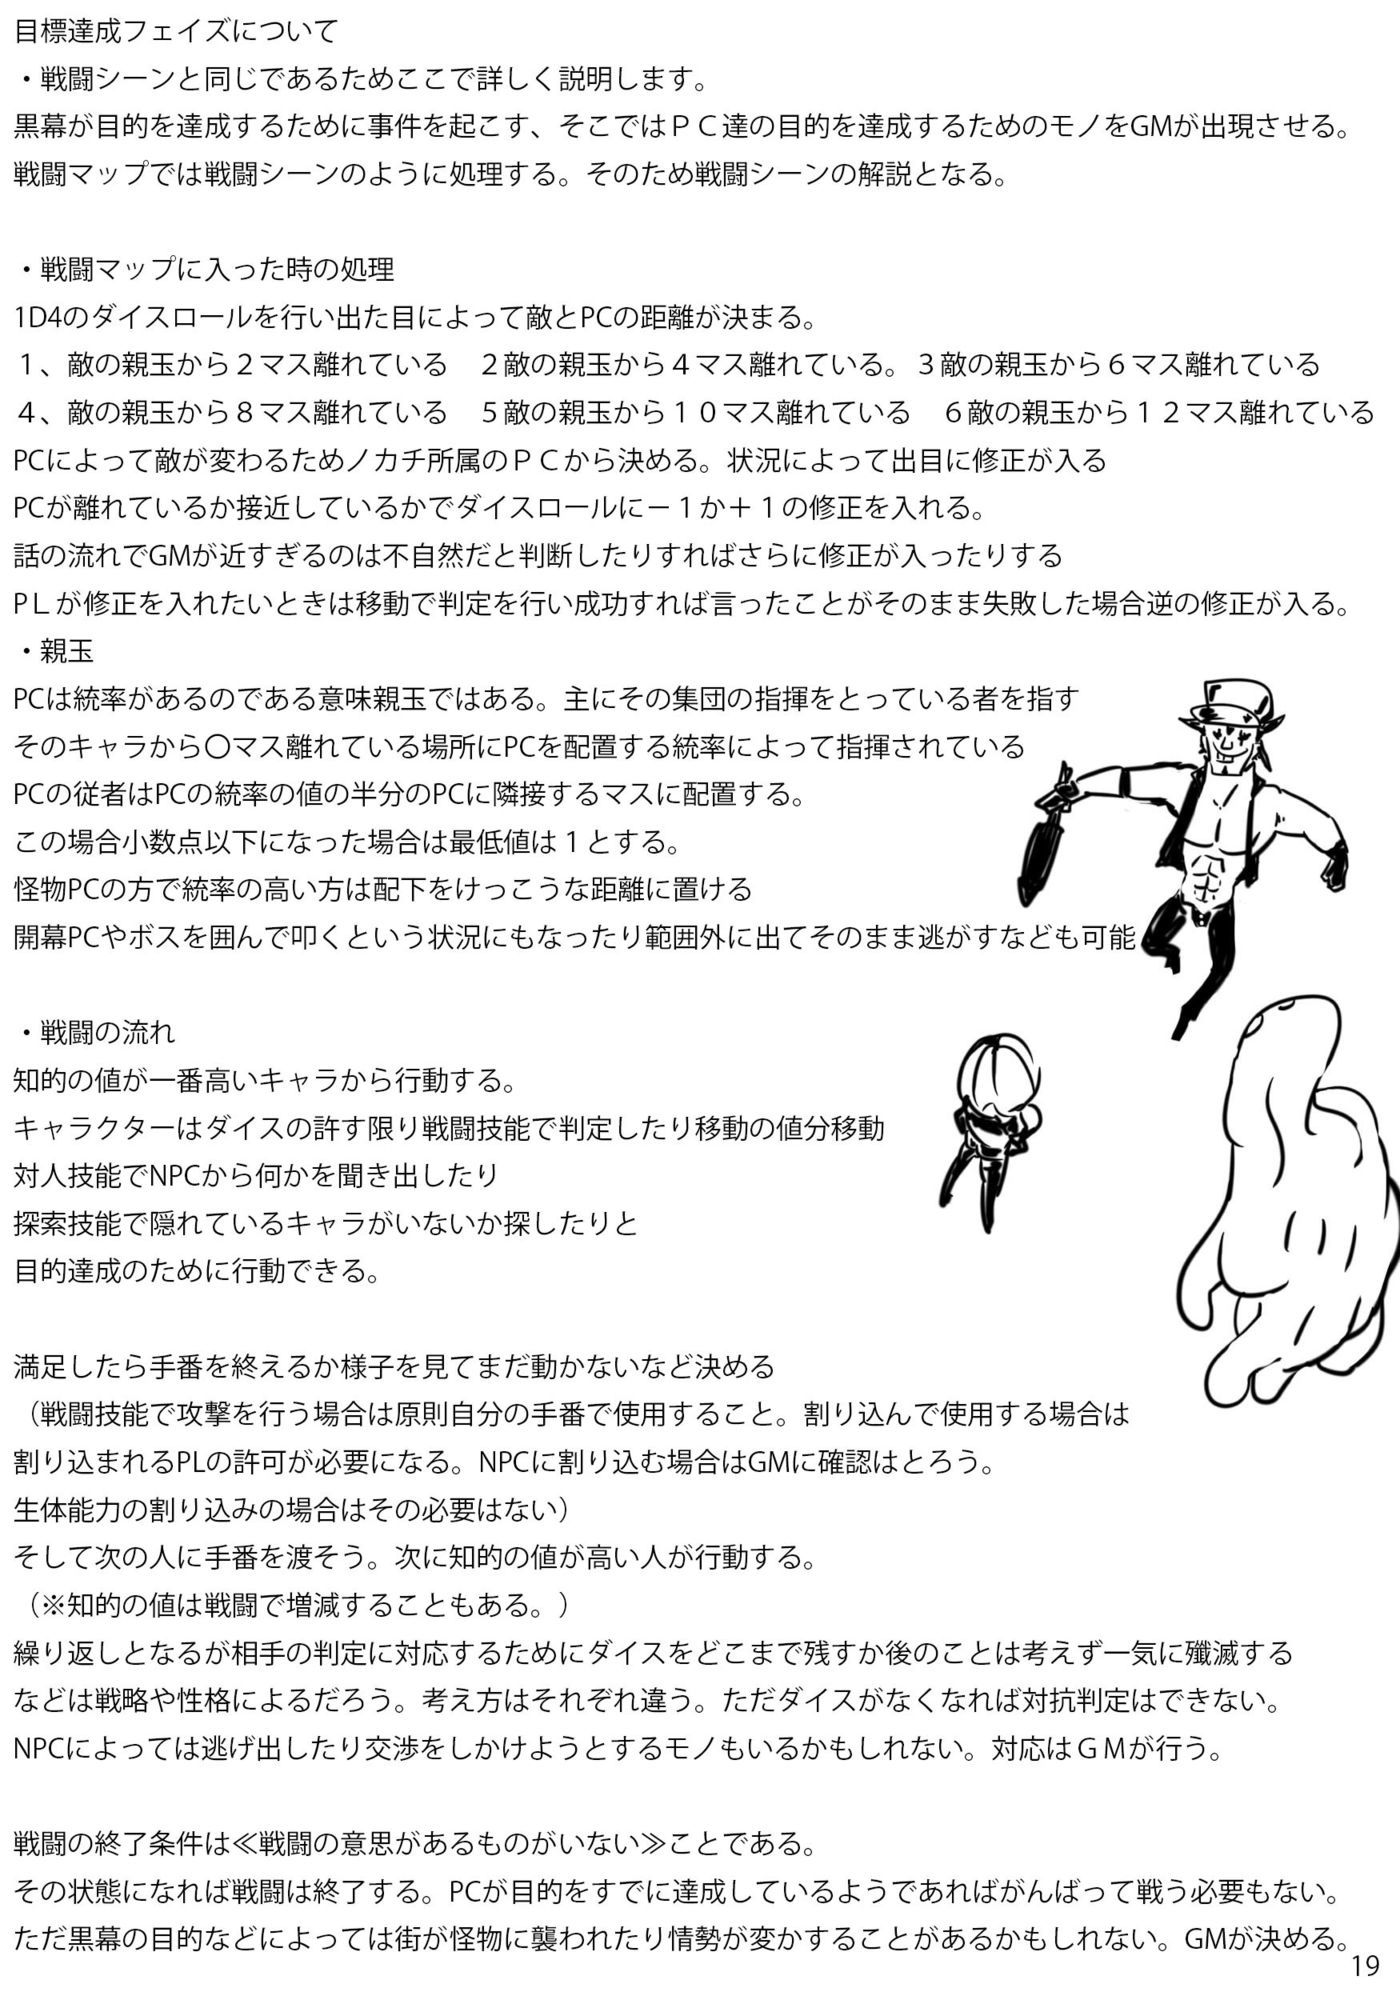 目標達成フェイズについて
・戦闘シーンと同じであるためここで詳しく説明します。
黒幕が目的を達成するために事件を起こす、そこではＰＣ達の目的を達成するためのモノをGMが出現させる。
戦闘マップでは戦闘シーンのように処理する。そのため戦闘シーンの解説となる。
・戦闘マップに入った時の処理
1D4のダイスロールを行い出た目によって敵とPCの距離が決まる。
１、敵の親玉から２マス離れている　２敵の親玉から４マス離れている。３敵の親玉から６マス離れている
４、敵の親玉から８マス離れている　５敵の親玉から１０マス離れている　６敵の親玉から１２マス離れている
PCによって敵が変わるためノカチ所属のＰＣから決める。状況によって出目に修正が入る
PCが離れているか接近しているかでダイスロールに－１か＋１の修正を入れる。
話の流れでGMが近すぎるのは不自然だと判断したりすればさらに修正が入ったりする
PＬが修正を入れたいときは移動で判定を行い成功すれば言ったことがそのまま失敗した場合逆の修正が入る。
・親玉
PCは統率があるのである意味親玉ではある。主にその集団の指揮をとっている者を指す
そのキャラから〇マス離れている場所にPCを配置する統率によって指揮されている
PCの従者はPCの統率の値の半分のPCに隣接するマスに配置する。
この場合小数点以下になった場合は最低値は１とする。
怪物PCの方で統率の高い方は配下をけっこうな距離に置ける
開幕PCやボスを囲んで叩くという状況にもなったり範囲外に出てそのまま逃がすなども可能
・戦闘の流れ
知的の値が一番高いキャラから行動する。
キャラクターはダイスの許す限り戦闘技能で判定したり移動の値分移動
対人技能でNPCから何かを聞き出したり
探索技能で隠れているキャラがいないか探したりと
目的達成のために行動できる。
満足したら手番を終えるか様子を見てまだ動かないなど決める
（戦闘技能で攻撃を行う場合は原則自分の手番で使用すること。割り込んで使用する場合は
割り込まれるPLの許可が必要になる。NPCに割り込む場合はGMに確認はとろう。
生体能力の割り込みの場合はその必要はない）
そして次の人に手番を渡そう。次に知的の値が高い人が行動する。
（※知的の値は戦闘で増減することもある。）
繰り返しとなるが相手の判定に対応するためにダイスをどこまで残すか後のことは考えず一気に殲滅する
などは戦略や性格によるだろう。考え方はそれぞれ違う。ただダイスがなくなれば対抗判定はできない。
NPCによっては逃げ出したり交渉をしかけようとするモノもいるかもしれない。対応はＧＭが行う。
戦闘の終了条件は≪戦闘の意思があるものがいない≫ことである。
その状態になれば戦闘は終了する。PCが目的をすでに達成しているようであればがんばって戦う必要もない。
ただ黒幕の目的などによっては街が怪物に襲われたり情勢が変かすることがあるかもしれない。GMが決める。
19